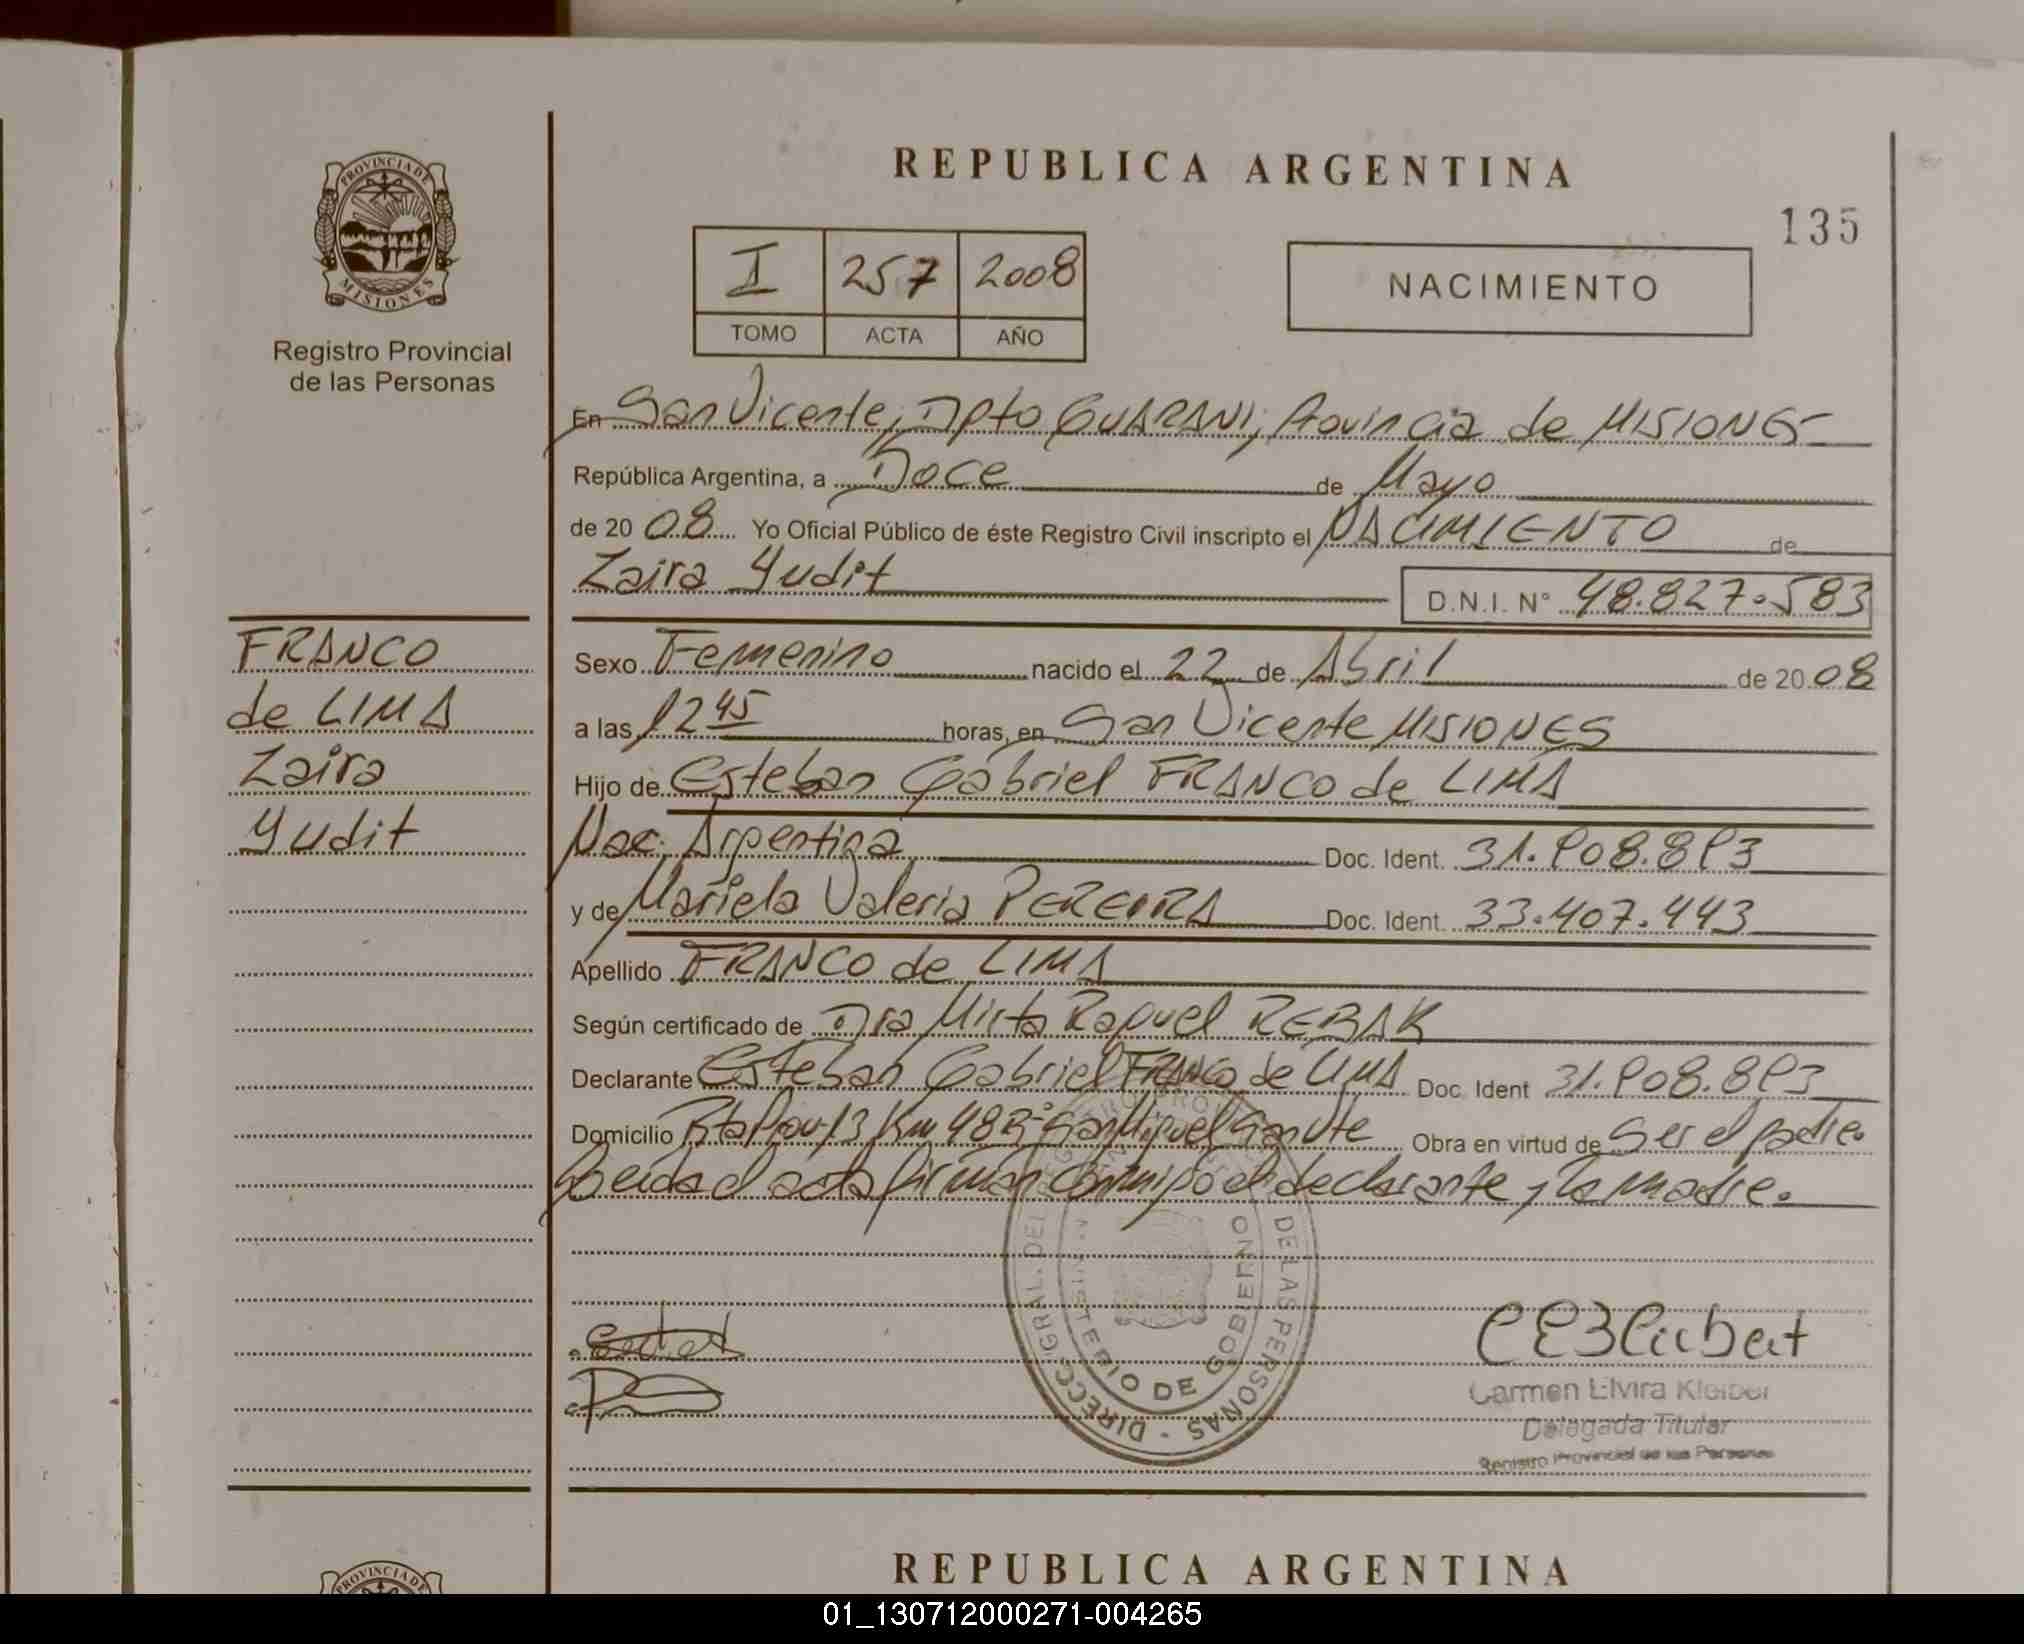 REPUBLICA ARGENTINA
135
PROVINCIA DE
MISIONES
Registro Provincial
de las Personas
I 257 2008
TOMO ACTA AÑO
NACIMIENTO
En San Vicente, Dpto GUARANI, Provincia de MISIONES
República Argentina, a Doce de Mayo
de 20 08 Yo Oficial Público de éste Registro Civil inscripto el NACIMIENTO de
Zaira Yudit D.N.I. N° 48.827.583
FRANCO
de LIMA
Zaira
Yudit
Sexo Femenino nacido el 22 de Abril de 20 08
a las 12 45 horas, en San Vicente MISIONES
Hijo de Esteban Gabriel FRANCO de LIMA
Nac. Argentina Doc. Ident. 31.908.893
y de Mariela Valeria PEREIRA Doc. Ident. 33.407.443
Apellido FRANCO de LIMA
Según certificado de Dra Mirta Raquel REBAK
Declarante Esteban Gabriel FRANCO de LIMA Doc. Ident 31.908.893
Domicilio Rta Prov 13 Km 48 B° San Miguel San Vte Obra en virtud de Ser el padre.
Leida el acta firman conmigo el declarante y la madre.
DIRECC. GRAL. DEL DE LAS PERSONAS
DE GOBIERNO
Carmen Elvira Kleiber
Delegada Titular
Registro Provincial de las Personas
REPUBLICA ARGENTINA
PROVINCIA DE
01_130712000271-004265